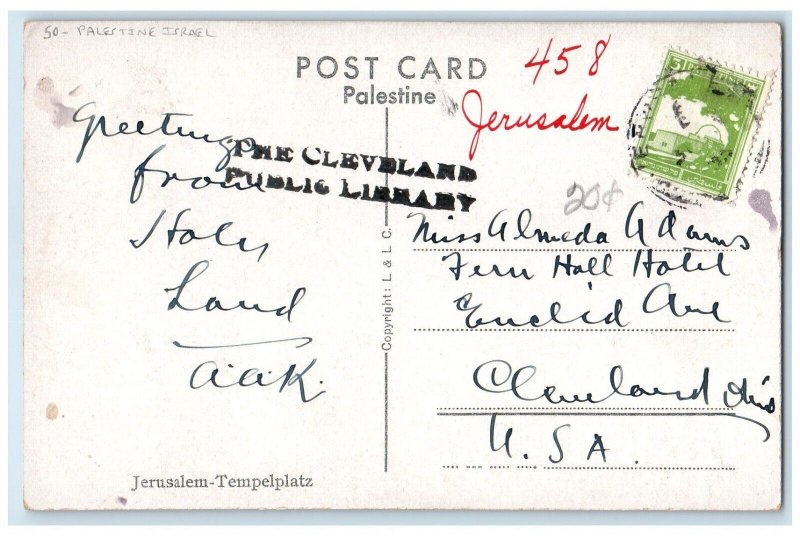 50- PALESTINE ISRAEL
POST CARD
Palestine
458
Jerusalem
THE CLEVELAND
PUBLIC LIBRARY
20¢
Greetings
from
Holy
Land
A.A.K.
Miss Almeda Adams
Fern Hall Hotel
Euclid Ave
Cleveland Ohio
U.S.A.
Copyright: L & L C.
Jerusalem-Tempelplatz